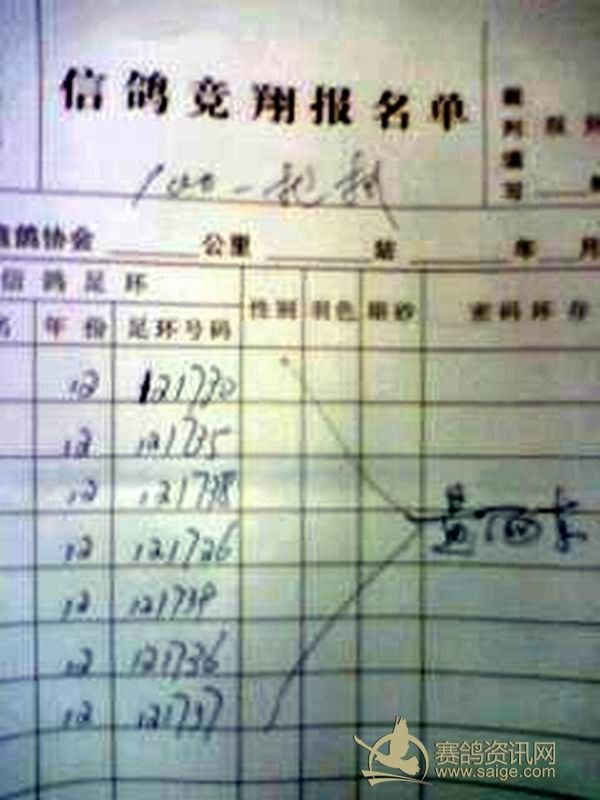 信鸽竞翔报名单
填写
鸽协会 公里 站 年 月
信鸽足环
名 年份 足环号码 性别 羽色 眼砂 密码环存
12 121730
12 121735
12 121738
12 121726
12 121739
12 121736
12 121737
赛鸽资讯网
www.saige.com